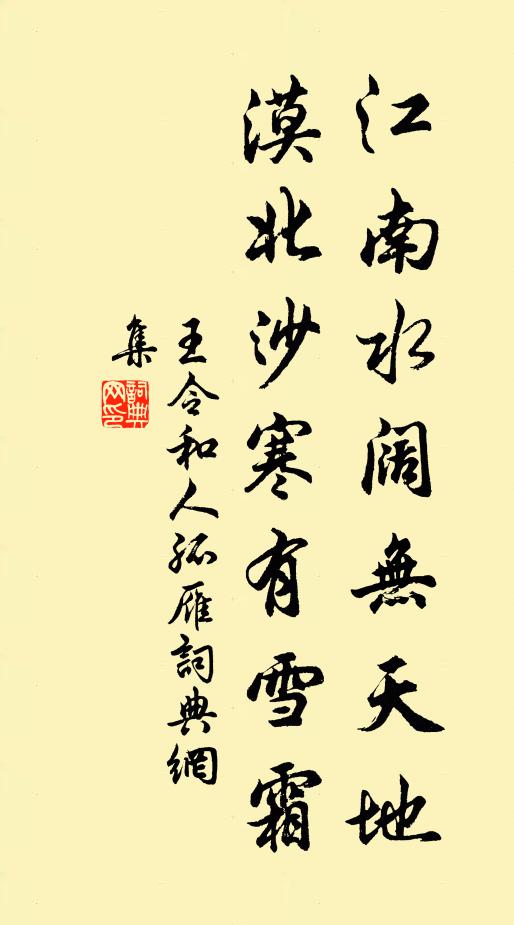 江南水阔無天地
漠北沙寒有雪霜
王令和人孤雁詞典網
集
詞典網印